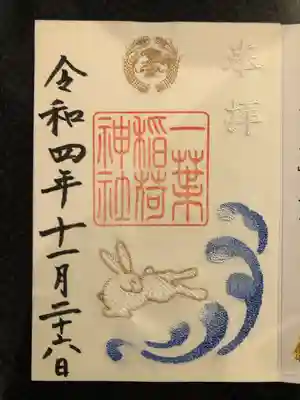 奉拝
一葉
稲荷
神社
令和四年十一月二十六日